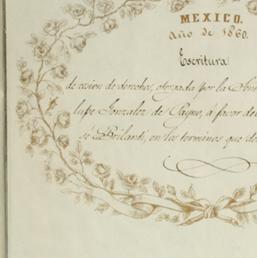 MEXICO.
Año de 1860.
Escritura
de cesion de derechos, otorgada por la
lupe Gonzalez de Payno, á favor de
sé Brilanti, en los terminos que